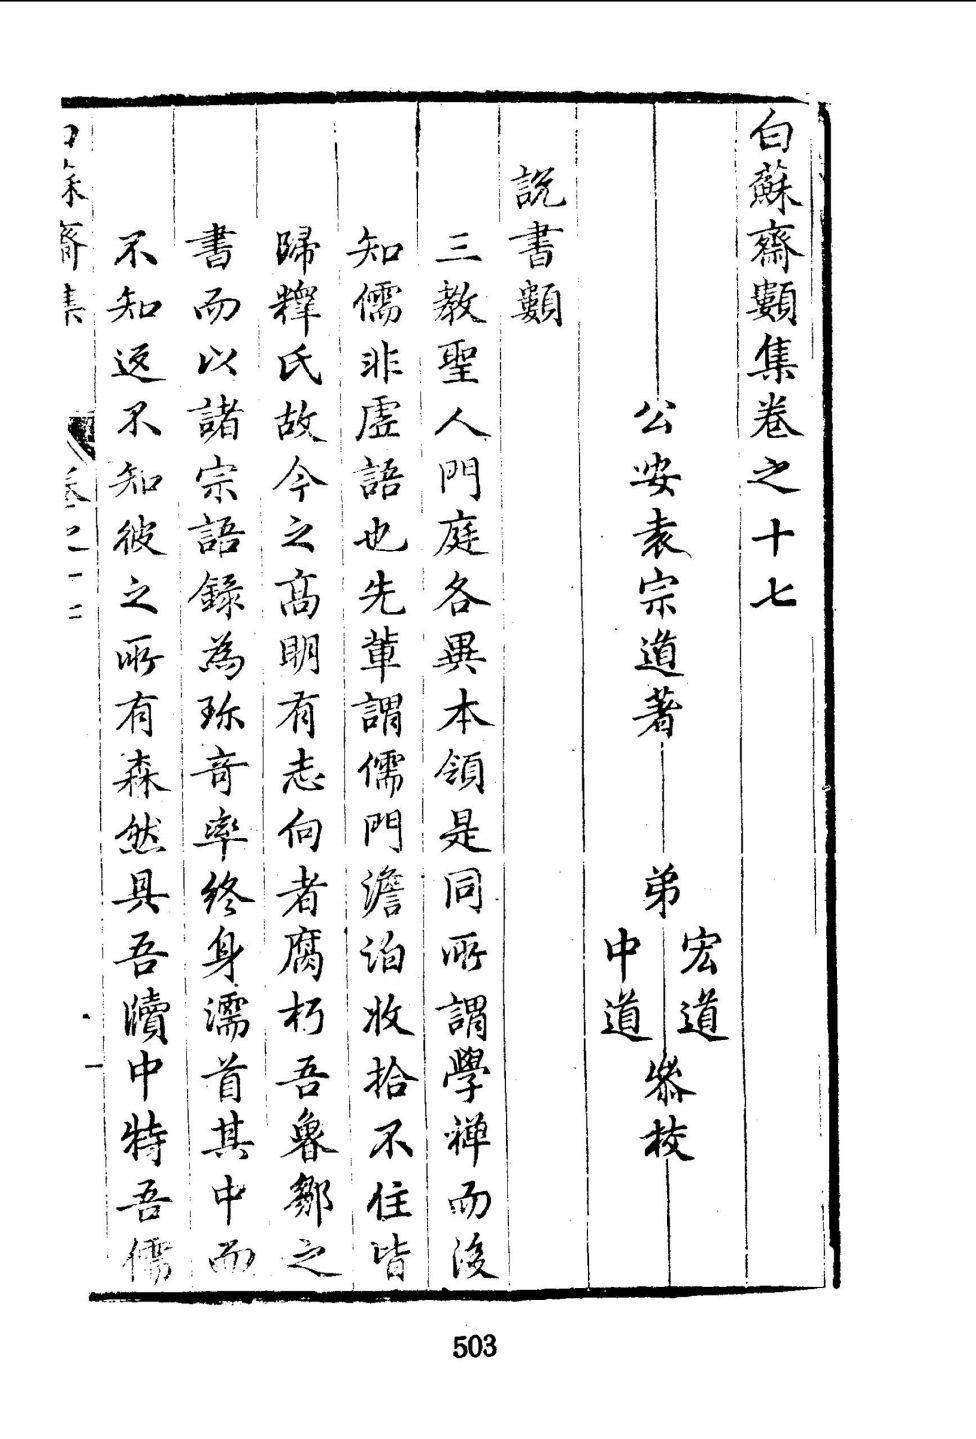 白蘇齋類集卷之十七
公安袁宗道著 弟 宏道 中道 叅校
說書類
三教聖人門庭各異本領是同所謂學禪而後
知儒非虛語也先輩謂儒門澹泊收拾不住皆
歸釋氏故今之高明有志向者腐朽吾魯鄒之
書而以諸宗語錄為珎竒率終身濡首其中而
不知返不知彼之所有森然具吾牘中特吾儒
白蘇齋集 卷之十七 一
503